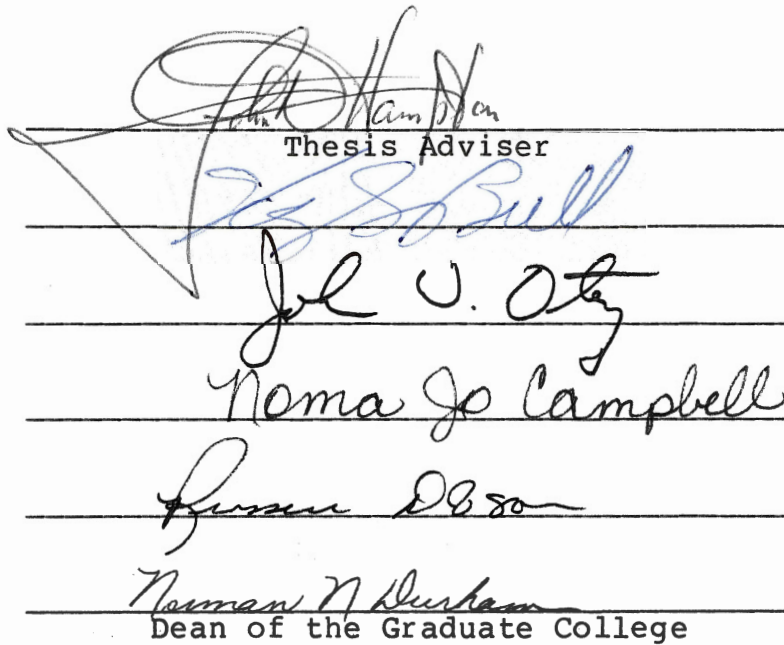 John Hampton
Thesis Adviser
Kay S. Bull
John U. Otey
Noma Jo Campbell
Russell Dobson
Norman N Durham
Dean of the Graduate College